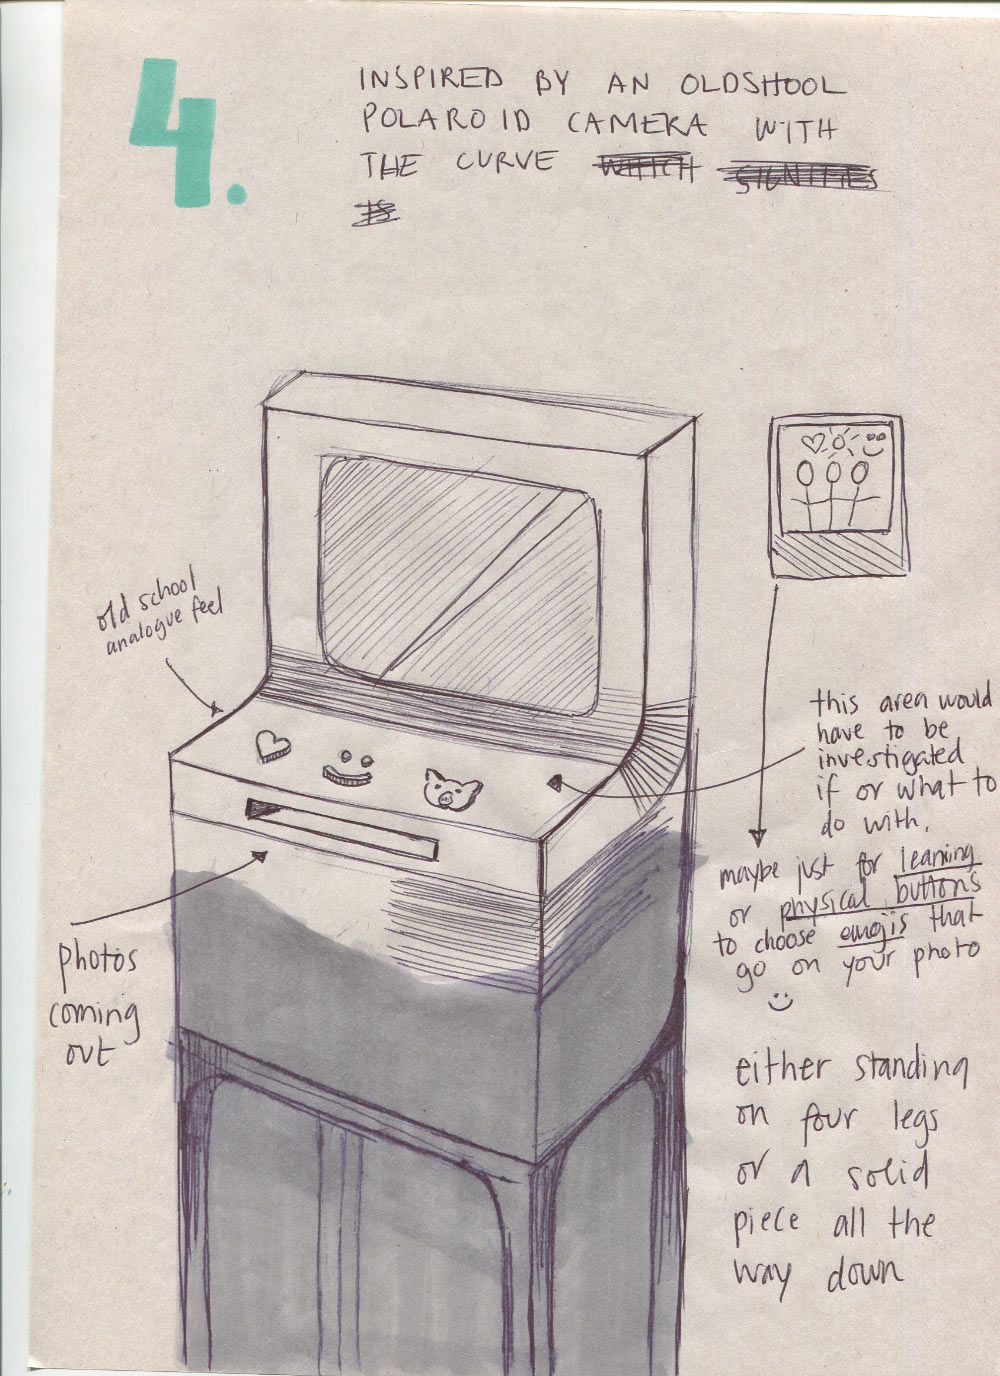 4.
INSPIRED BY AN OLDSHOOL
POLAROID CAMERA WITH
THE CURVE WHICH SIGNIFIES
IS
old school
analogue feel
this area would
have to be
investigated
if or what to
do with.
maybe just for leaning
or physical buttons
to choose emojis that
go on your photo
photos
coming
out
either standing
on four legs
or a solid
piece all the
way down